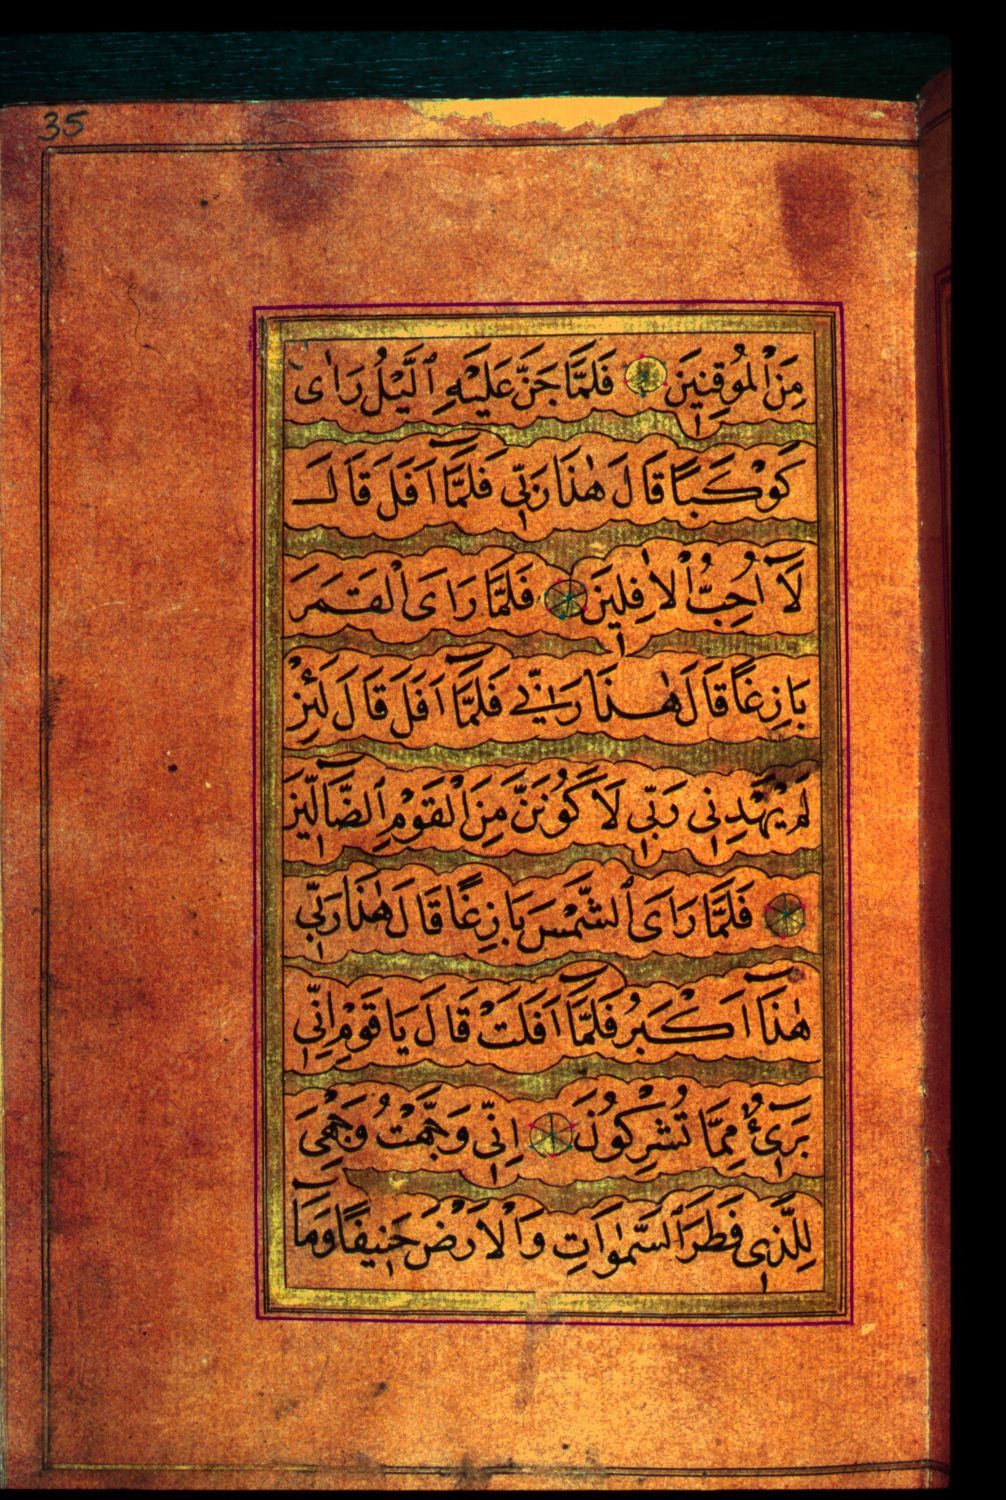 35
مِنَ الْمُوقِنِينَ فَلَمَّا جَنَّ عَلَيْهِ ٱلَّيْلُ رَاٰى
كَوْكَبًا قَالَ هٰذَا رَبّٖى فَلَمَّٓا اَفَلَ قَالَ
لَٓا اُحِبُّ الْاٰفِلٖينَ فَلَمَّا رَاَى الْقَمَرَ
بَازِغًا قَالَ هٰذَا رَبّٖى فَلَمَّٓا اَفَلَ قَالَ لَئِنْ
لَمْ يَهْدِنٖى رَبّٖى لَاَكُونَنَّ مِنَ الْقَوْمِ ٱلضَّٓالّٖينَ
فَلَمَّا رَاَى ٱلشَّمْسَ بَازِغًا قَالَ هٰذَا رَبّٖى
هٰذَٓا اَكْبَرُ فَلَمَّٓا اَفَلَتْ قَالَ يَا قَوْمِ اِنّٖى
بَرَٓئٌ مِمَّا تُشْرِكُونَ اِنّٖى وَجَّهْتُ وَجْهِىَ
لِلَّذٖى فَطَرَ ٱلسَّمٰوَاتِ وَالْاَرْضَ حَنٖيفًا وَمَٓا